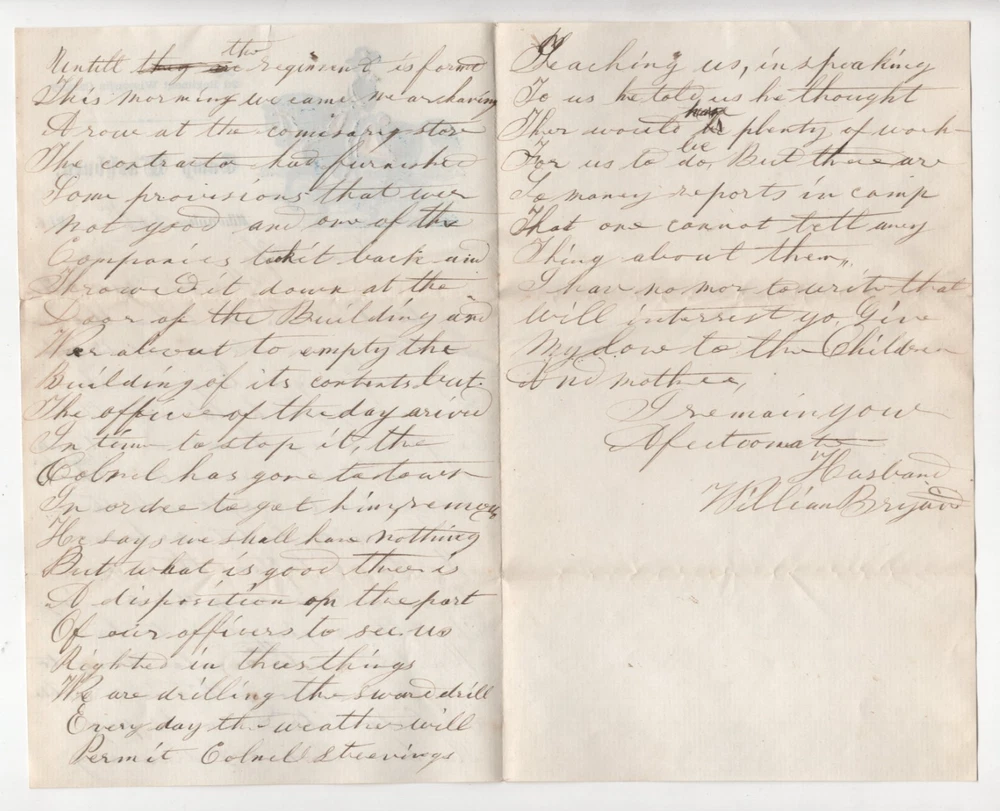 Untill they are the regiment is formd
This morning we came near having
A row at the comisary store
The contractor had furnished
Some provisions that wer
not good and one of the
Companies tookit back and
Throwed it down at the
Door of the Building and
Wer about to empty the
Building of its contents but
The officer of the day arived
In time to stop it, the
Colnel has gone to town
In order to get him remov
He says we shall have nothing
But what is good ther is
A disposition on the part
Of our officers to see us
Righted in thees things
We are drilling the sword drill
Every day the weather will
Permit Colnell Steevings
Teaching us, in speaking
To us he told us he thought
Ther would have plenty of work
For us to be do, But there are
So maney reports in camp
That one cannot tell aney
Thing about them,,
I hav no mor to write that
Will interrest yo, Give
My Love to the Children
And mother,
I remain your
Afectionate
Husband
William